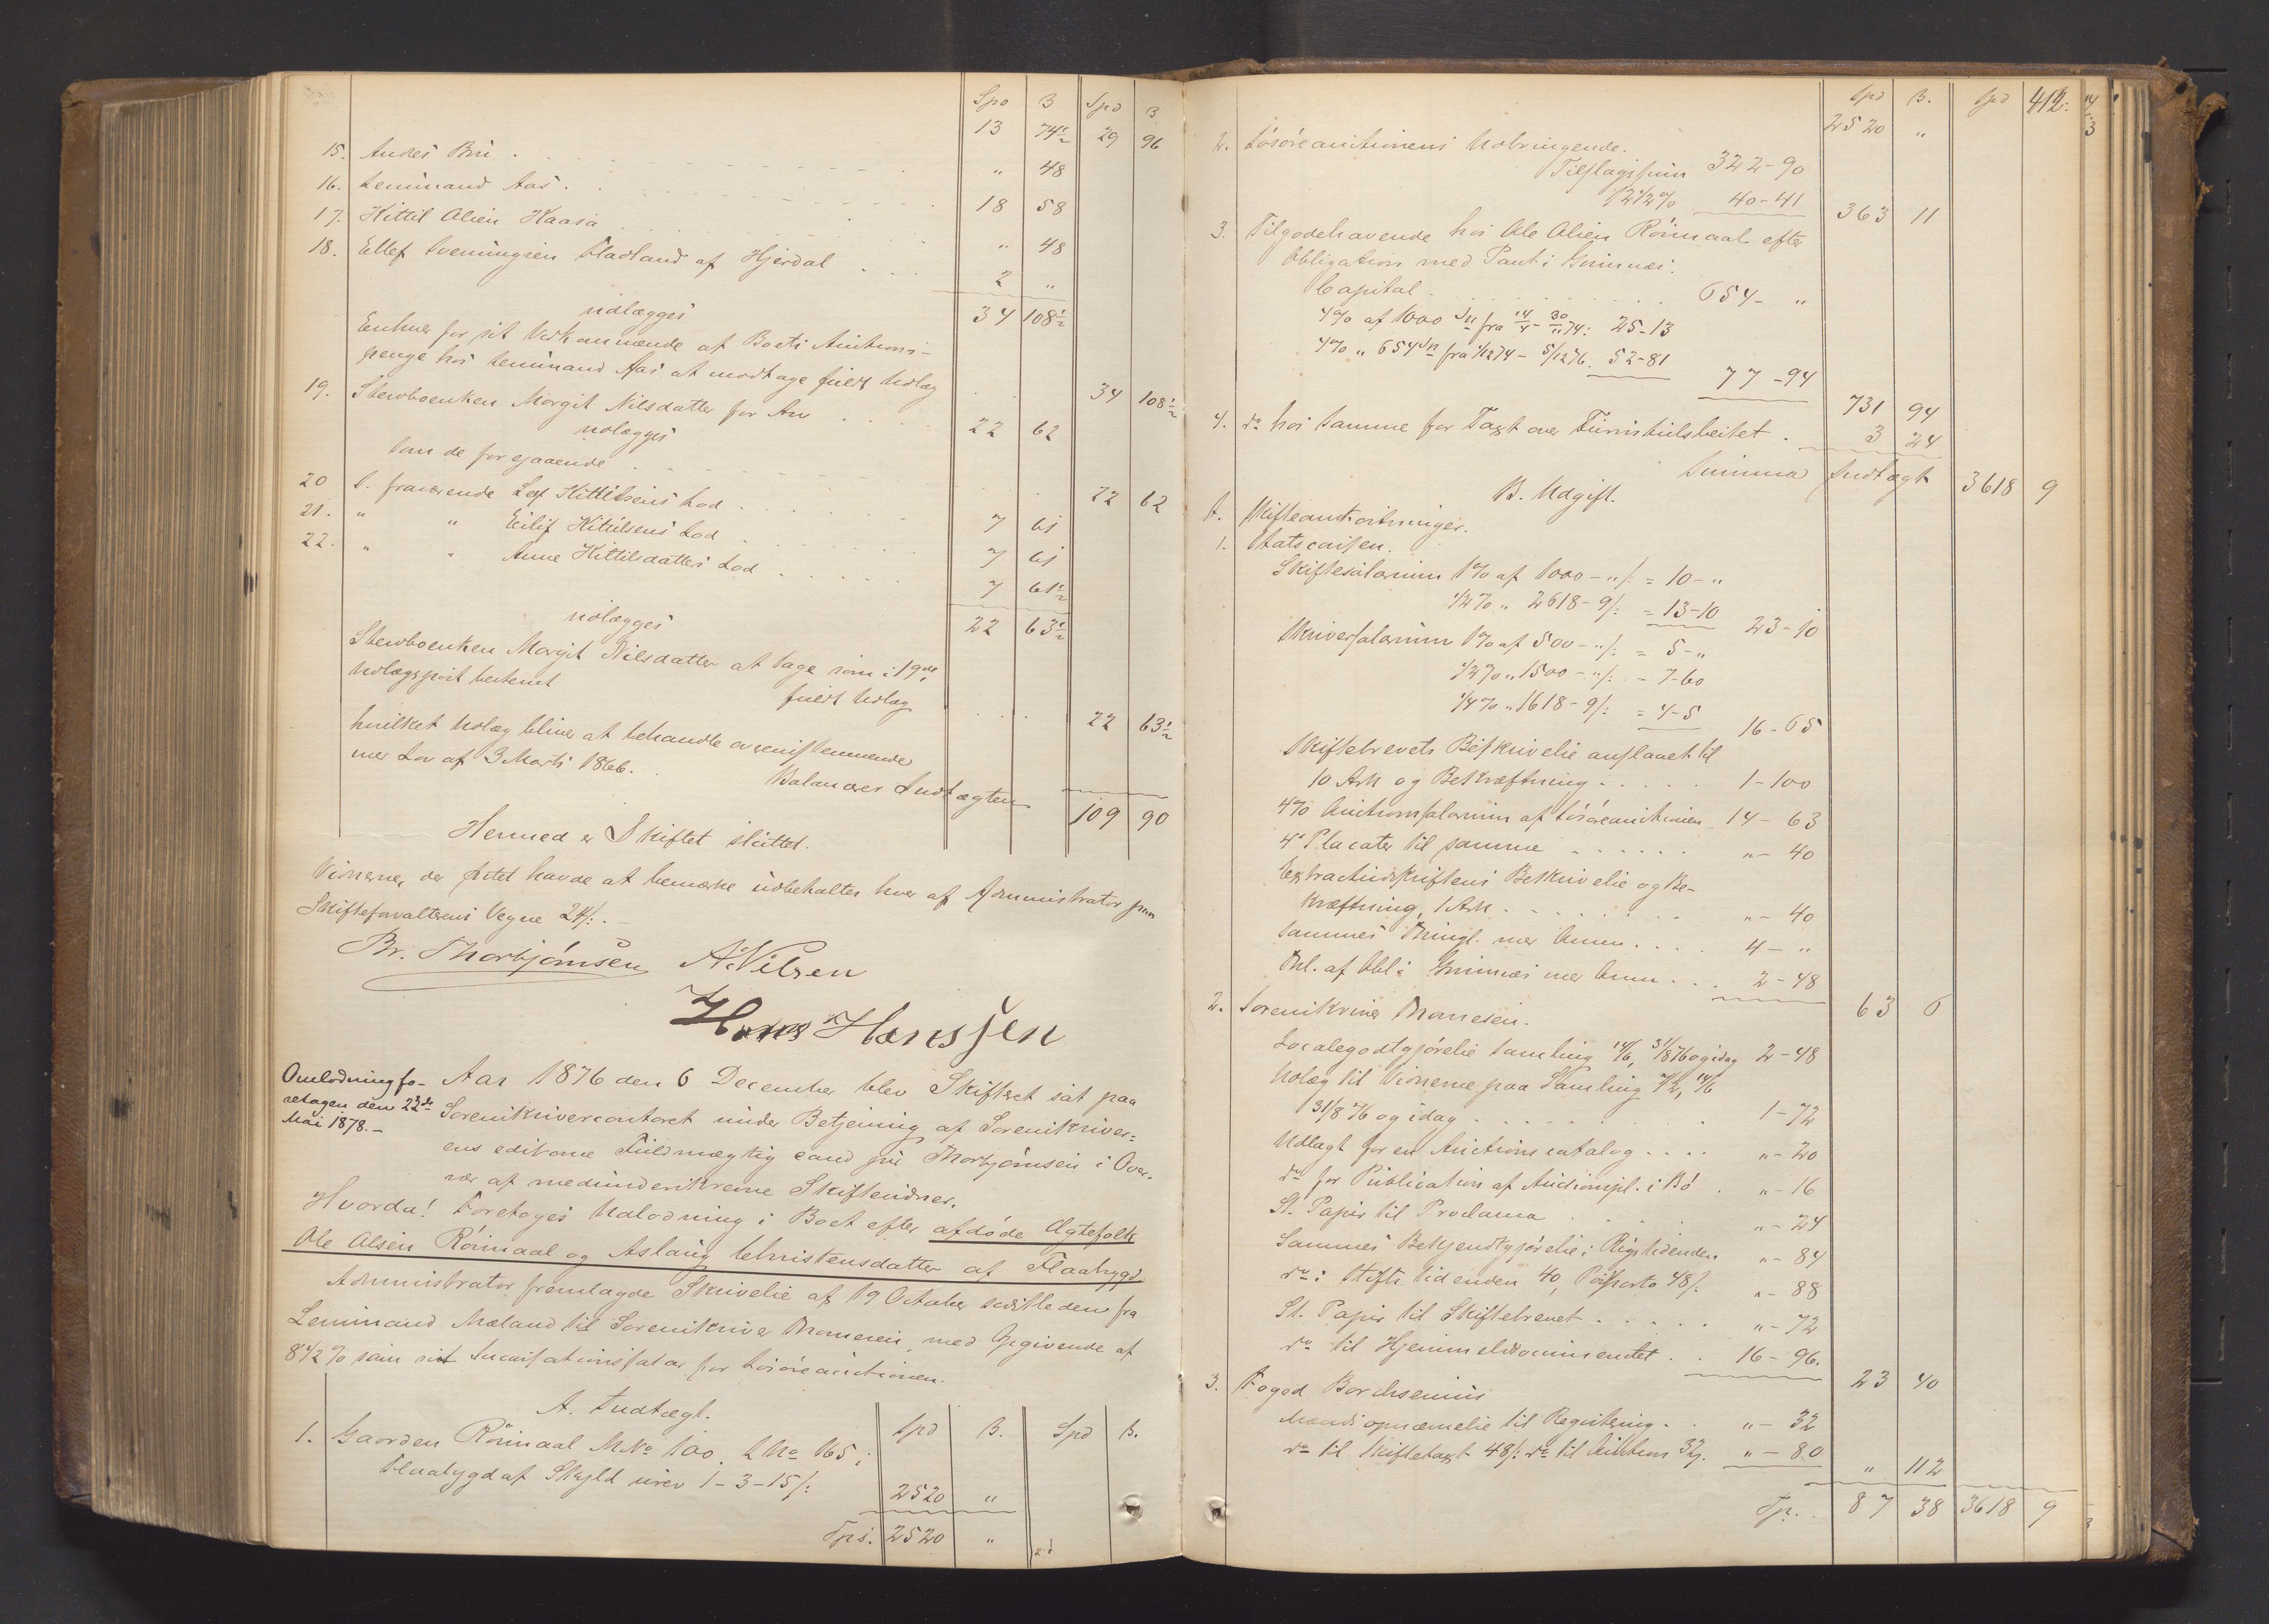 Spd ẞ Spd ẞ
13 74½ 29 96
15. Anders Bru . . . " 48
16. Lensmand Aas . . . 18 58
17. Kittil Olsen Haasa . . . " 48
18. Ellef Sveningsen Fladland af Hjerdal . . . 2 "
udlægges 34 108½
Enhver for sit Vedkommende af Boets Auctions-
penge hos Lensmand Aas at modtage fuldt Udlæg . . 34 108½
19. Stervboenken Margit Nilsdatter for Arv . . . 22 62
udlægges
som de foregaaende . . . 22 62
20 S. fraværende Leif Kittilsens Lod . . . 7 61
21. " " Eilif Kittilsens Lod . . . 7 61
22. " " Anne Kittilsdatters Lod . . . 7 61½
udlægges 22 63½
Stervboenken Margit Nilsdatter at tage som i 19de
Udlægspost bestemt fuldt Udlæg . . . 22 63½
hvilket Udlæg bliver at behandle overensstemmende
med Lov af 3 Marts 1866.
Balancerer Indtægten 109 90
Hermed er Skiftet sluttet.
Vidnerne, der Intet havde at bemærke udbetaltes hver af Administrator paa
Skifteforvalterens Vegne 24/:. –
Br. Thorbjörnsen A. Nilsen
Hans Hanssen
Omlodning fo-
retagen den 22de
Mai 1878. –
Aar 1876 den 6 December blev Skifteret sat paa
Sorenskrivercontoret under Betjening af Sorenskriver-
ens edsvorne Fuldmægtig cand jur Thorbjörnsen i Over-
vær af medunderskrevne Skiftevidner.
Hvorda! Foretoges Udlodning i Boet efter afdöde Ægtefolk
Ole Olsen Römaal og Aslaug Christensdatter af Flaabygd.
Administrator fremlagde Skrivelse af 19 October sidstleden fra
Lensmand Mæland til Sorenskriver Thomesen, med Opgivende af
8½ % som sit Incassationssalar for Lösöreauctionen.
A. Indtægt. Spd ẞ. Spd ẞ.
1. Gaarden Römaal M No 100. L No 165 i
Flaabygd af Skyld urev 1-3-15/: 2520 "
Tps. 2520 "
Spd ẞ. Spd 412.
2520 "
2. Lösöreauctionens Udbringende.
Tilslagssum 322-90
12½% 40-41 363 11
3. Tilgodehavende hos Ole Olsen Römaal efter
Obligation med Pant i Grimnæs.
Capital . . . 654- "
4% af 1000 Sp fra 14/4 - 30/11 74: 25-13
4% " 654 Sp fra 1/12 74 - 5/12 76. 52-81
77-94 731 94
4. do hos Samme for Taxt over Turrisbülsbeitet . 3 24
Summa Indtægt 3618 9
B. Udgift.
A. Skifteomkostninger.
1. Statscassen.
Skiftesalarium 1% af 1000-"/: = 10-"
½% " 2618-9/: = 13-10 23-10
Skriversalarium 1% af 500-"/: = 5-"
½% " 1500-"/: = 7-60
¼% " 1618-9/: = 4-5 16-65
Skiftebrevets Beskrivelse anslaaet til
10 Ark og Bekræftning . . . 1-100
4% Auctionssalarium af Lösöreauctionen 14-63
4 Placater til samme . . . "-40
Extractudskriftens Beskrivelse og Be-
kræftning, 1 Ark . . . "-40
Sammes Thingl. med Anm. . . . 4-"
Thl. af Obl i Grimnæs med Anm. . . 2-48
63 6
2. Sorenskriver Thomesen.
Localegodtgjörelse Samling 14/6, 31/8 76 og idag 2-48
Udlæg til Vidnerne paa Samling 7/2, 14/6
31/8 76 og idag . . . 1-72
Udlagt for en Auctionscatalog . . . . "-20
do for Publication af Auctionspl. i Bö . "-16
St. Papir til Proclama . . . "-24
Sammes Bekjendtgjörelse i Rigstidenden "-84
do i Stiftstidenden 40, Postporto 48/: "-88
St. Papir til Skiftebrevet . . . . . "-72
do til Hjemmelsdocumentet . . 16-96.
23 40
3. Foged Borchsenius
Mænds opnævnelse til Registering . . "-32
do til Skiftetaxt 48/: do til Auction 32/. "-80
" 112
Tp. . 87 38 3618 9